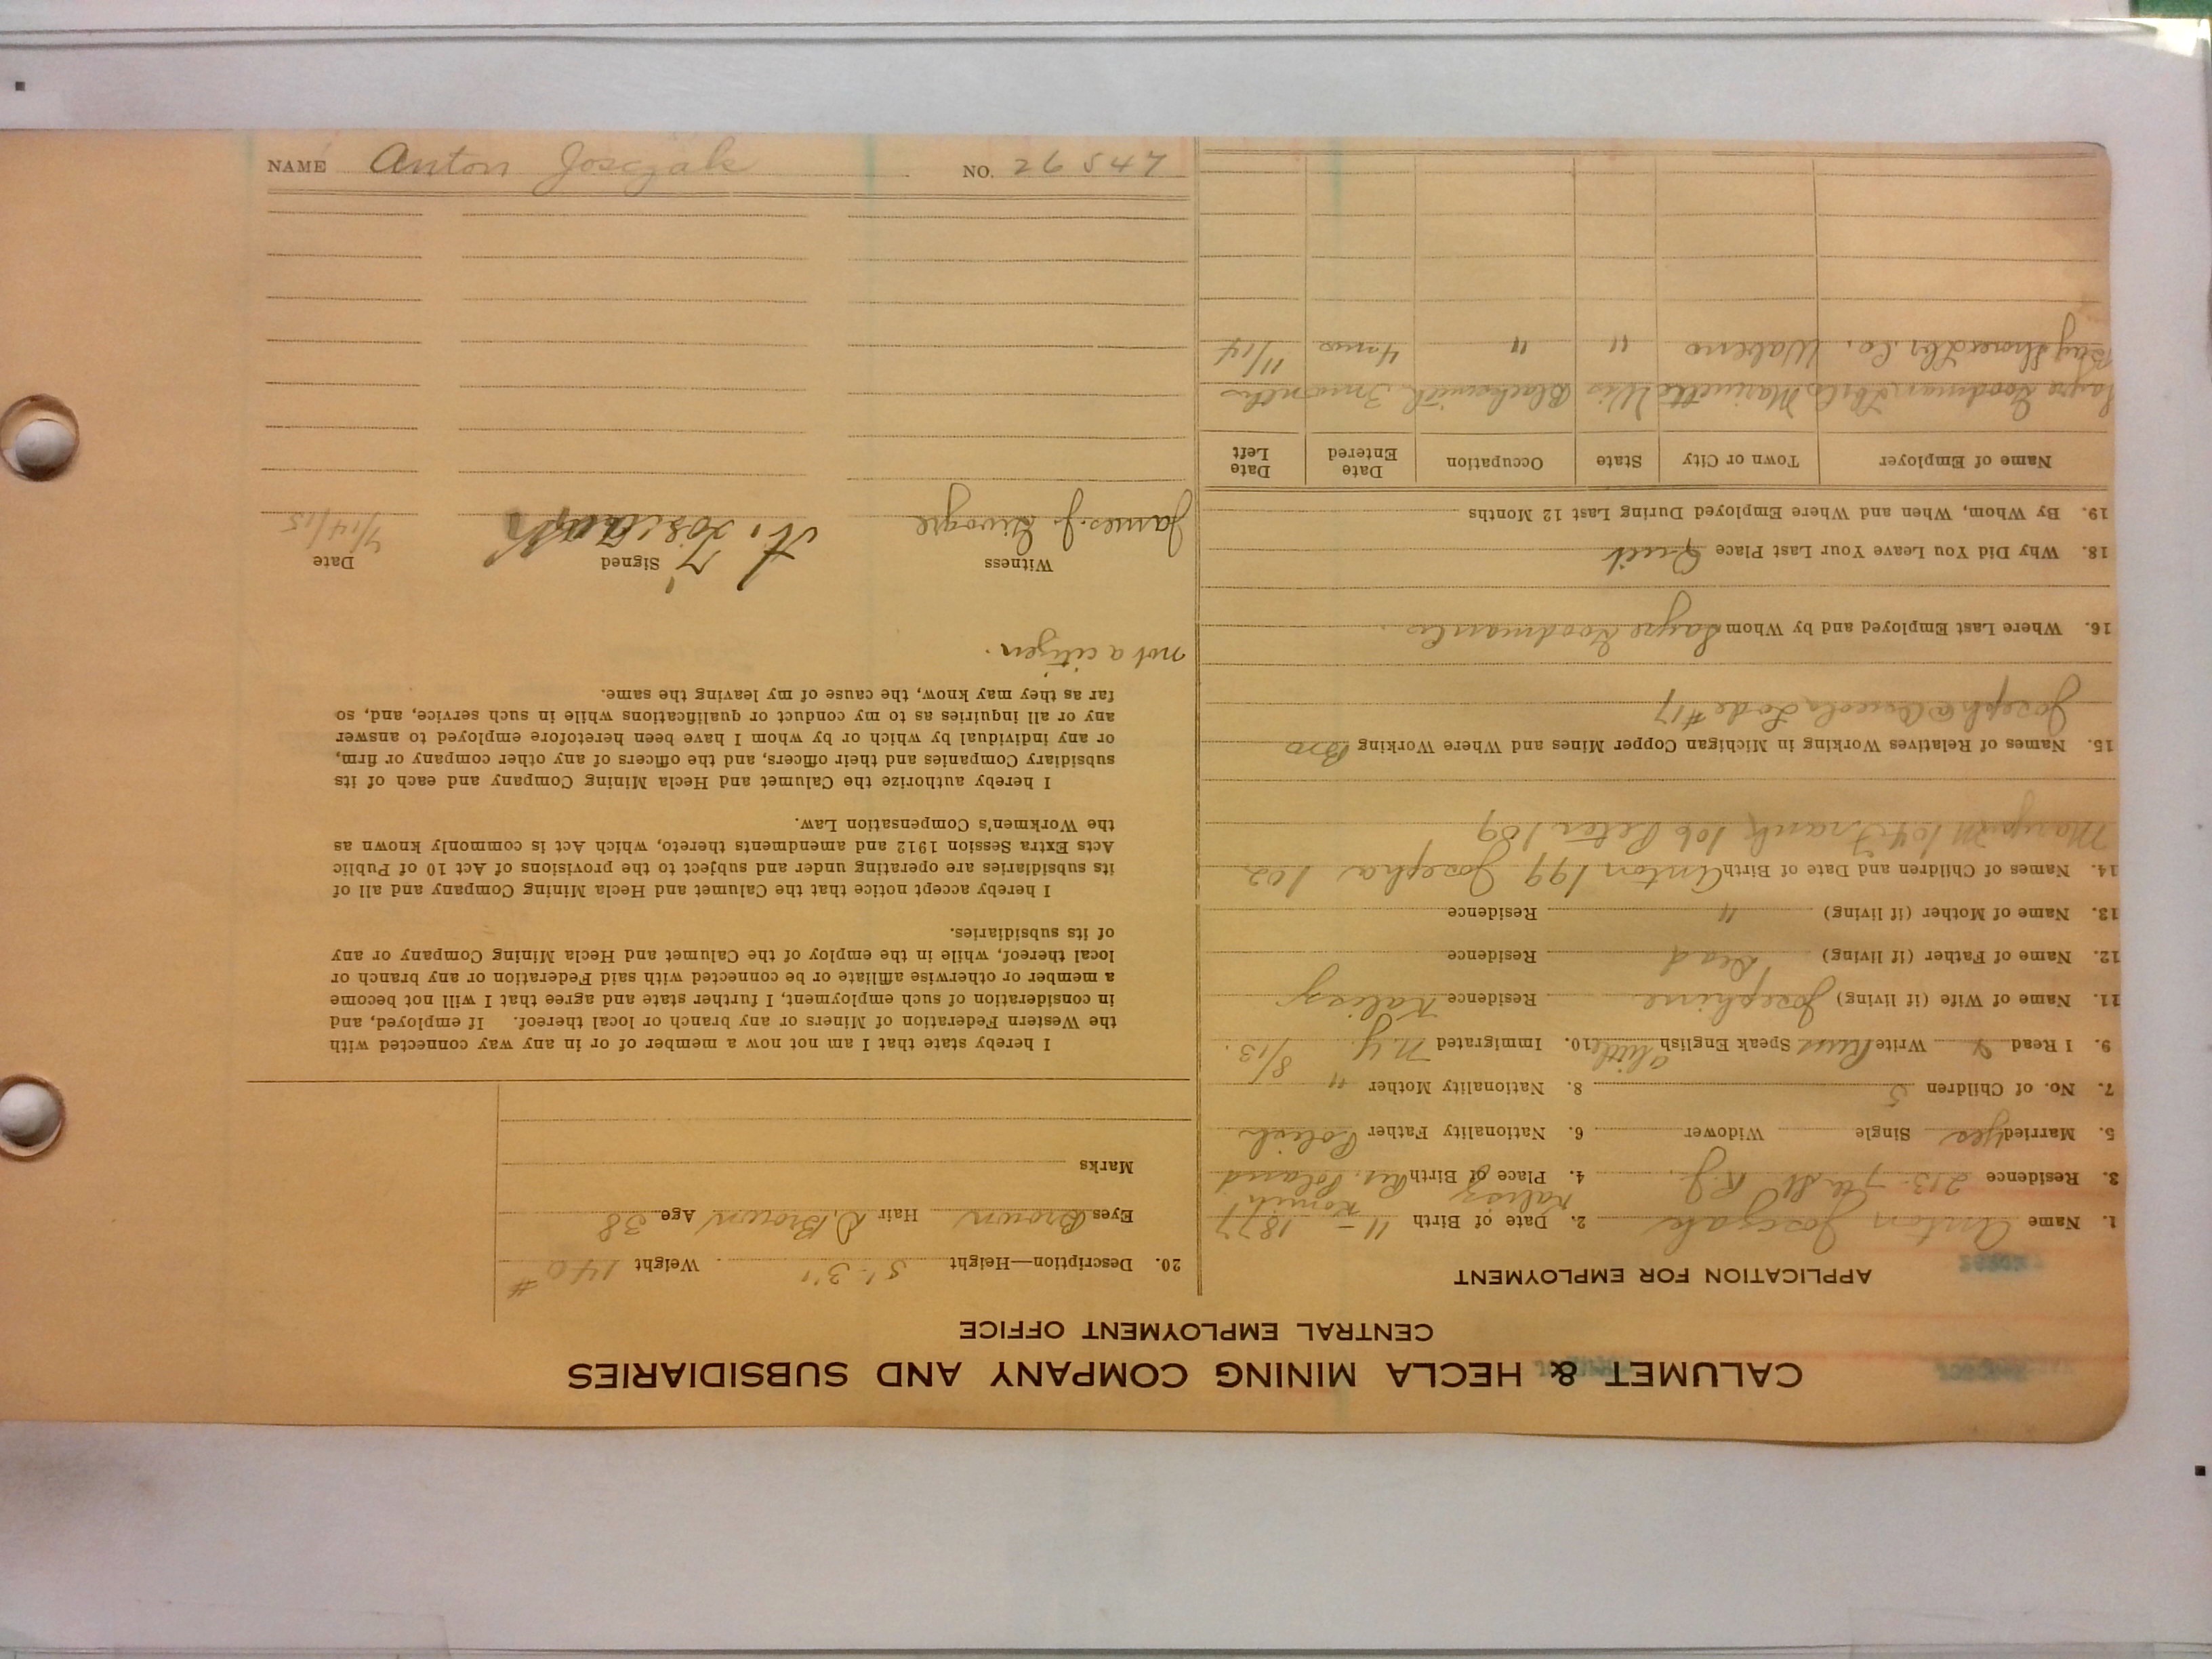 CALUMET & HECLA MINING COMPANY AND SUBSIDIARIES
CENTRAL EMPLOYMENT OFFICE
APPLICATION FOR EMPLOYMENT
1. Name Anton Josczak 2. Date of Birth 11 - 1877
3. Residence 213-7th St R.J. 4. Place of Birth Rus. Poland
Kalisz
5. Married yes Single Widower 6. Nationality Father Polish
7. No. of Children 5 8. Nationality Mother "
9. I Read Y Write Russ Speak English Little 10. Immigrated N.Y. 8/13.
11. Name of Wife (if living) Josephine Residence Kalisz
12. Name of Father (if living) Dead Residence
13. Name of Mother (if living) " Residence
14. Names of Children and Date of Birth Anton 199 Josepha 102
Mary 104 Frank 106 Peter 109
15. Names of Relatives Working in Michigan Copper Mines and Where Working Bro
Joseph @ Osceola Lode #17
16. Where Last Employed and by Whom Sayre Goodman
18. Why Did You Leave Your Last Place Quit
19. By Whom, When and Where Employed During Last 12 Months
Name of Employer Town or City State Occupation Date Entered Date Left
Sayre Goodman Marinette Wis Blacksmith
Bay Shore Lbr Co. Wabeno " " 4 mos 11/14
20. Description—Height 5'-3" Weight 140 #
Eyes Brown Hair D. Brown Age 38
Marks
I hereby state that I am not now a member of or in any way connected with
the Western Federation of Miners or any branch or local thereof. If employed, and
in consideration of such employment, I further state and agree that I will not become
a member or otherwise affiliate or be connected with said Federation or any branch or
local thereof, while in the employ of the Calumet and Hecla Mining Company or any
of its subsidiaries.
I hereby accept notice that the Calumet and Hecla Mining Company and all of
its subsidiaries are operating under and subject to the provisions of Act 10 of Public
Acts Extra Session 1912 and amendments thereto, which Act is commonly known as
the Workmen's Compensation Law.
I hereby authorize the Calumet and Hecla Mining Company and each of its
subsidiary Companies and their officers, and the officers of any other company or firm,
or any individual by which or by whom I have been heretofore employed to answer
any or all inquiries as to my conduct or qualifications while in such service, and, so
far as they may know, the cause of my leaving the same.
not a citizen.
Witness Signed Date
James. J. A. /14/15
NAME Anton Josczak NO. 26547